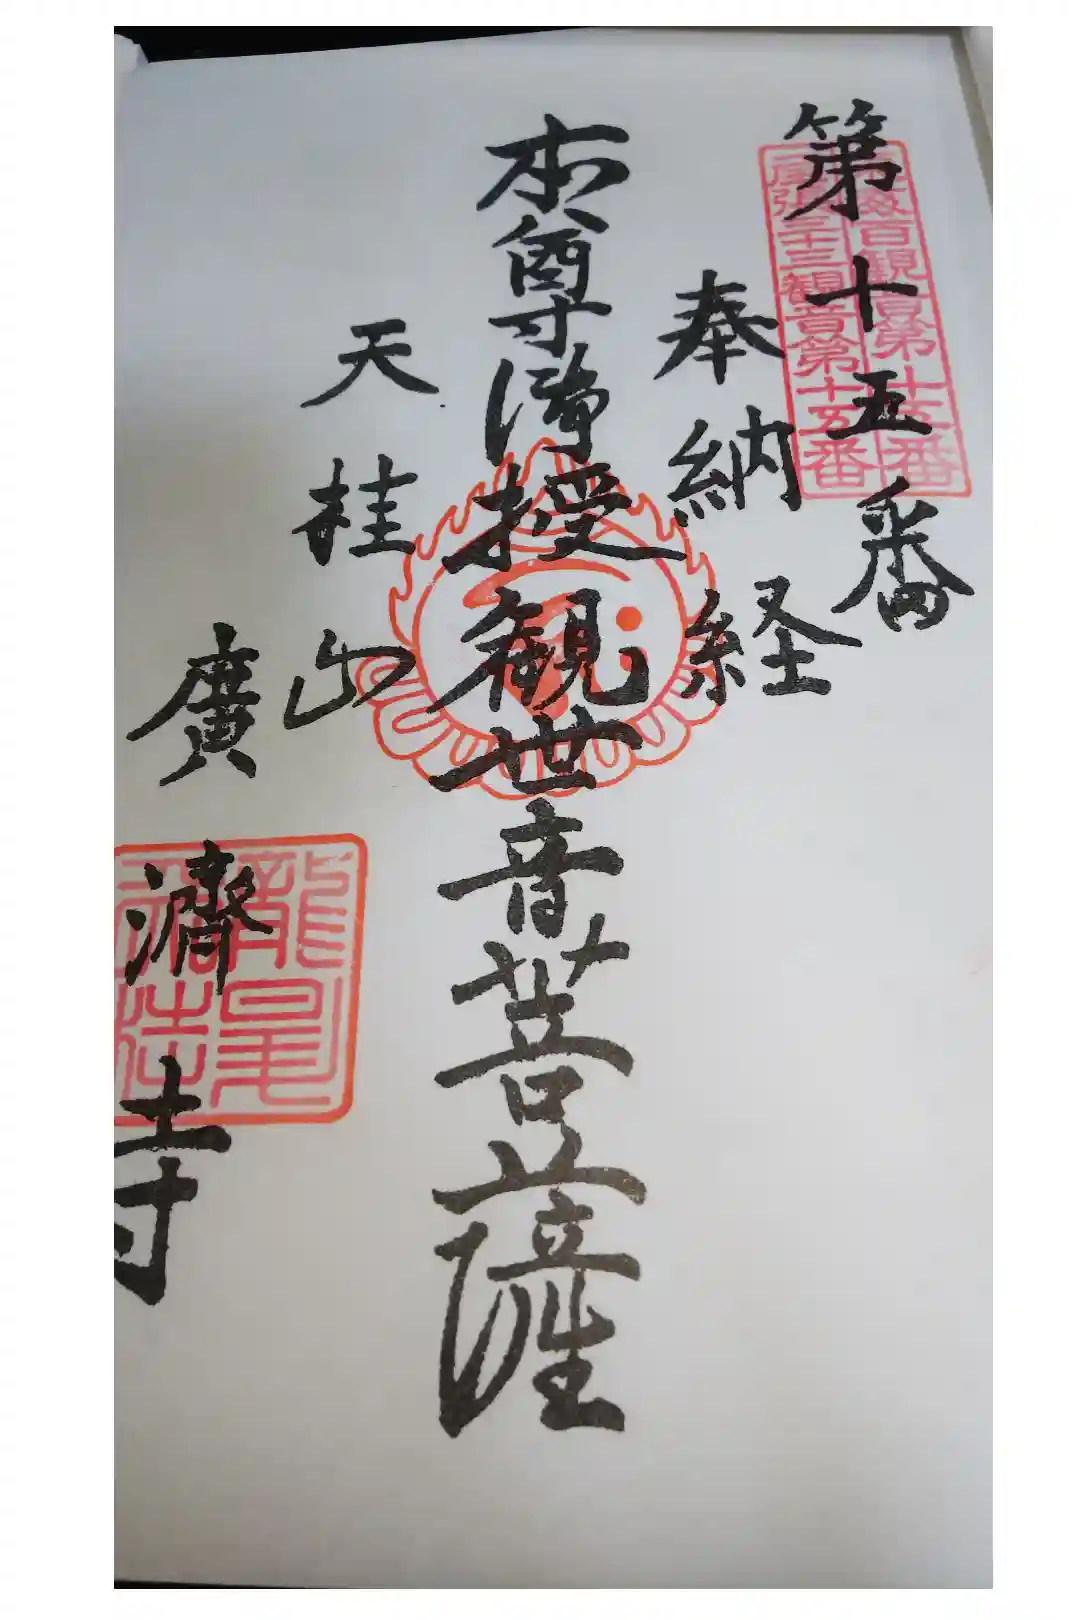 第十五番
海百観音第十五番
尾張三十三観音第十五番
奉納経
本尊 授観世音菩薩
天桂山
廣濟寺
龍尾